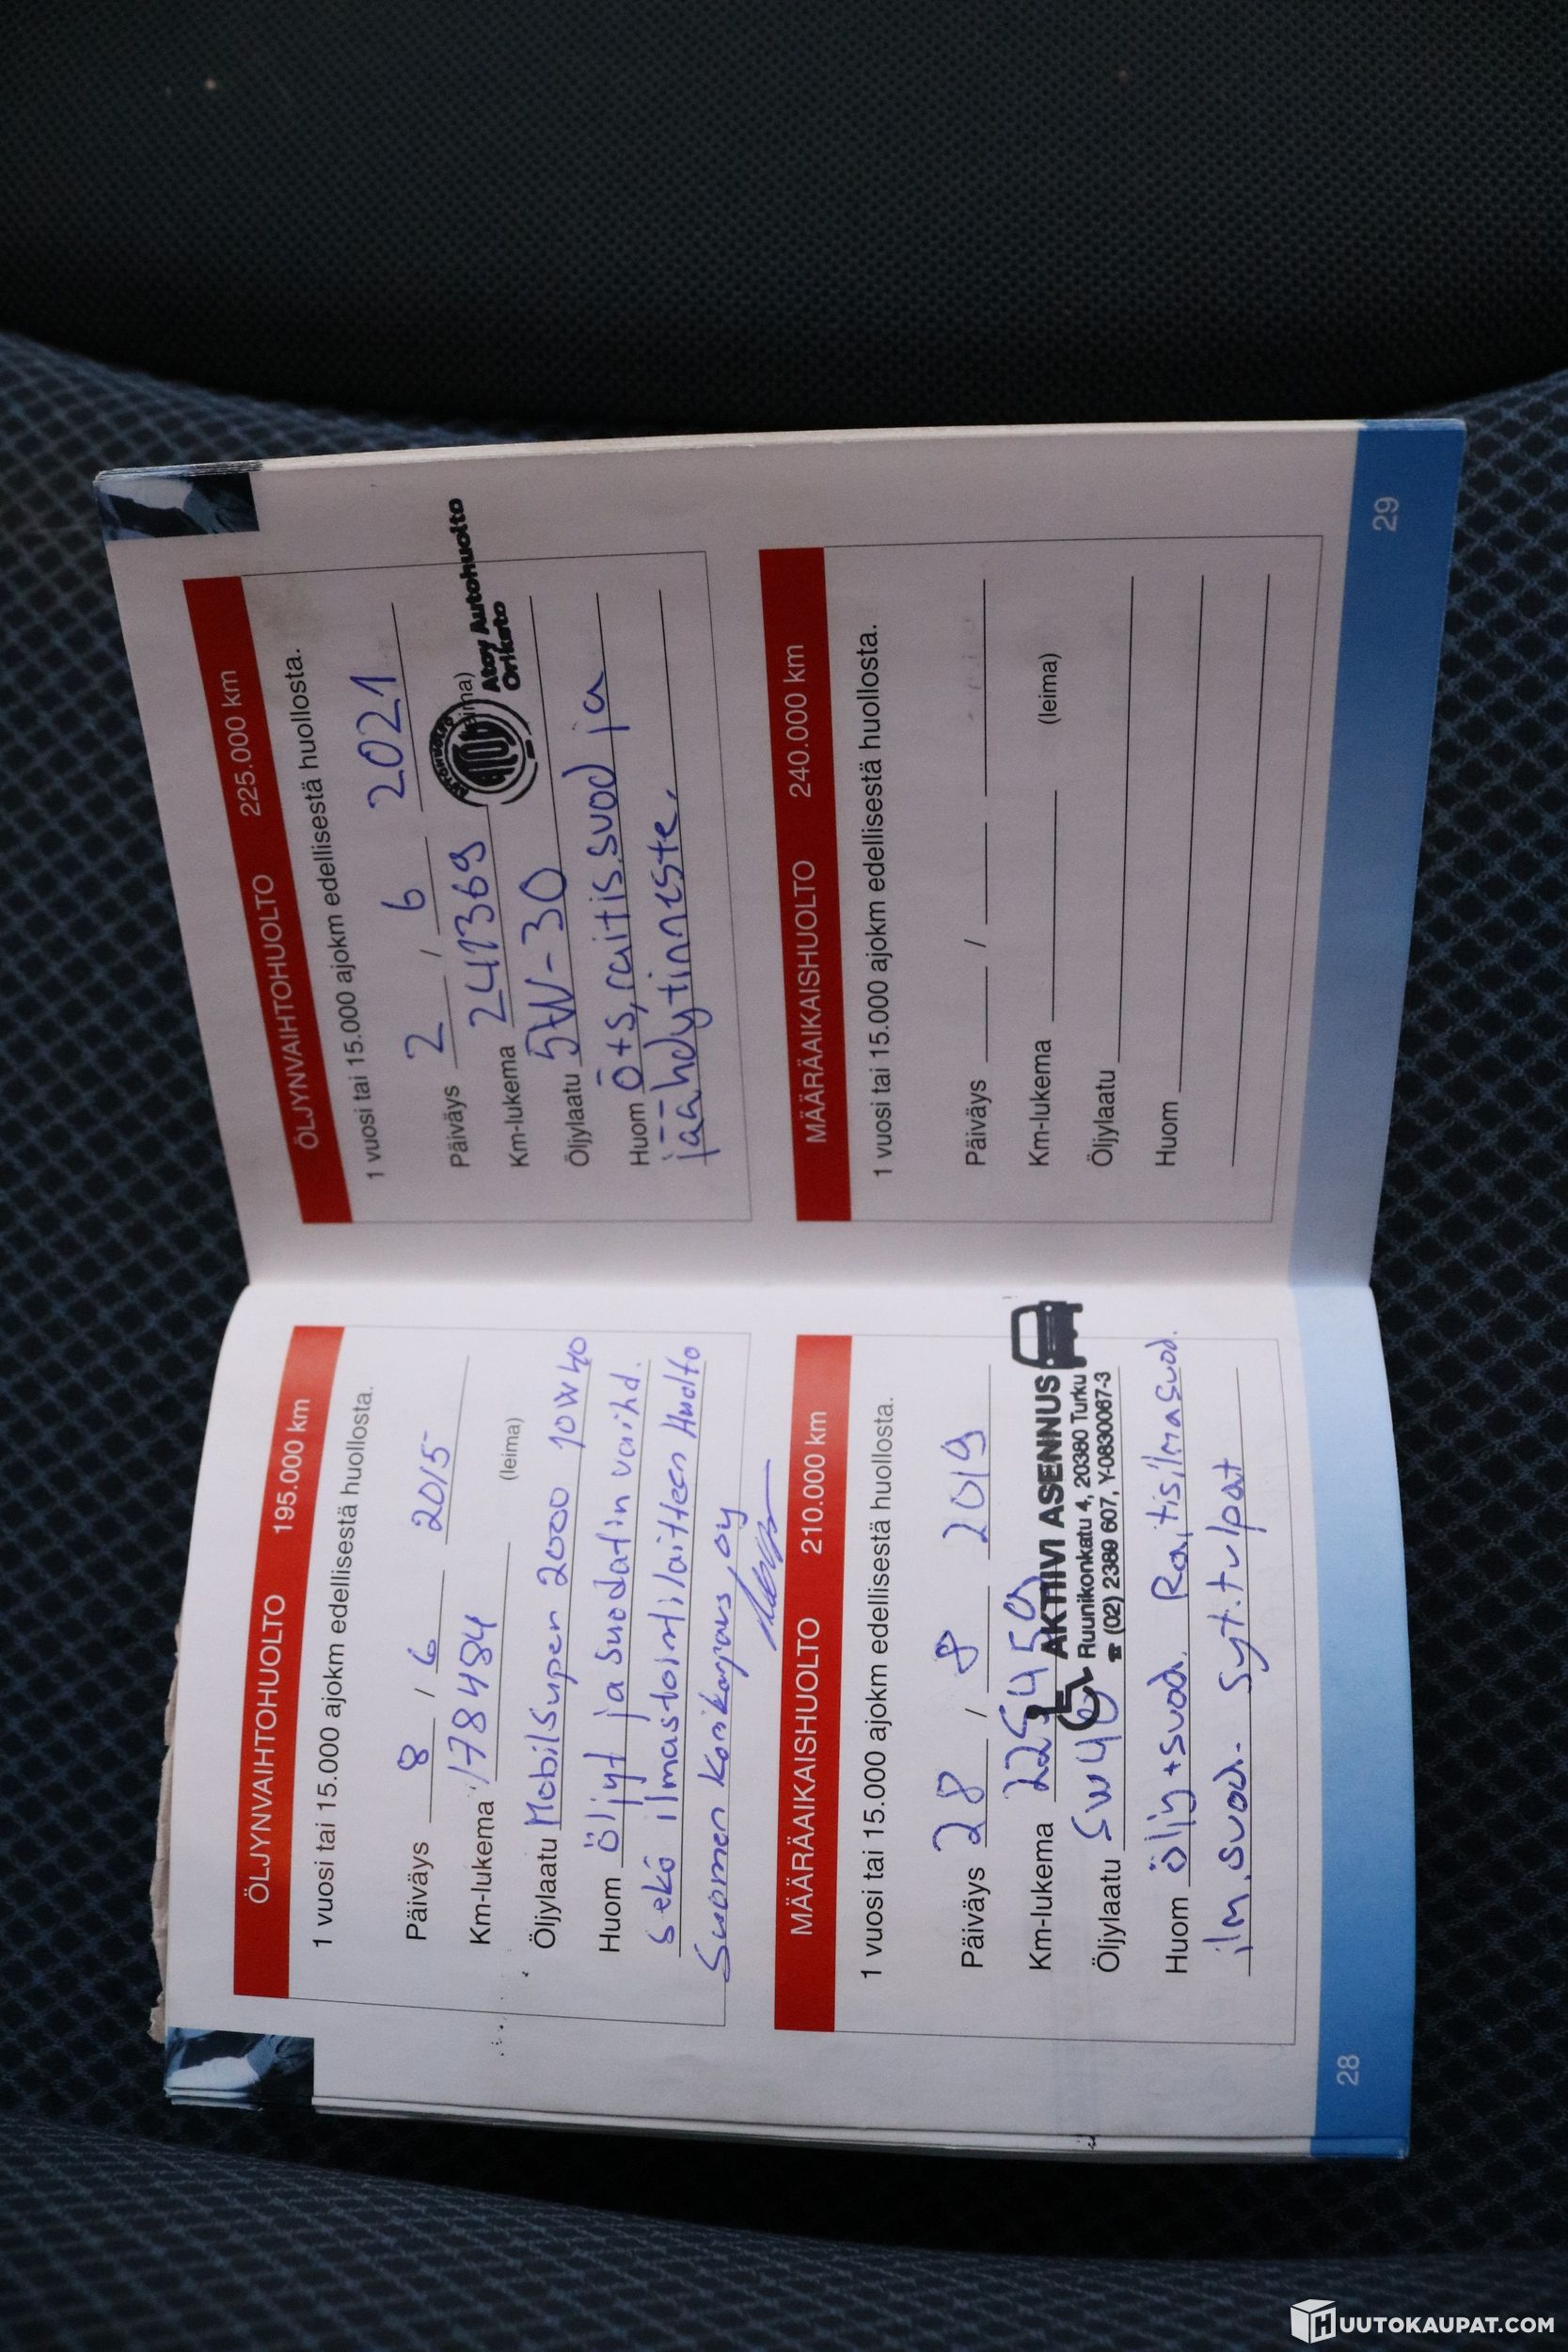 ÖLJYNVAIHTOHUOLTO 195.000 km
1 vuosi tai 15.000 ajokm edellisestä huollosta.
Päiväys 8 / 6 2015
Km-lukema 178484 (leima)
Öljylaatu Mobil Super 2000 10W40
Huom Öljyt ja suodatin vaihd.
sekä ilmastointilaitteen Huolto
Suomen Korikorjaus Oy
MÄÄRÄAIKAISHUOLTO 210.000 km
1 vuosi tai 15.000 ajokm edellisestä huollosta.
Päiväys 28 / 8 2019
Km-lukema
AKTIIVI ASENNUS
Ruunikonkatu 4, 20380 Turku
☎ (02) 2389 607, Y-0830067-3
Öljylaatu 5W40
Huom Öljy+suod. Raitisilmasuod.
ilm.suod. Syt.tulpat
28
ÖLJYNVAIHTOHUOLTO 225.000 km
1 vuosi tai 15.000 ajokm edellisestä huollosta.
Päiväys 2 / 6 2021
Km-lukema 241369
AUTOHUOLTO
Atoy Autohuolto
Orikato
Öljylaatu 5W-30
Huom ö+s, raitis.suod ja
jäähdytinneste.
MÄÄRÄAIKAISHUOLTO 240.000 km
1 vuosi tai 15.000 ajokm edellisestä huollosta.
Päiväys /
Km-lukema (leima)
Öljylaatu
Huom
29
HUUTOKAUPAT.COM